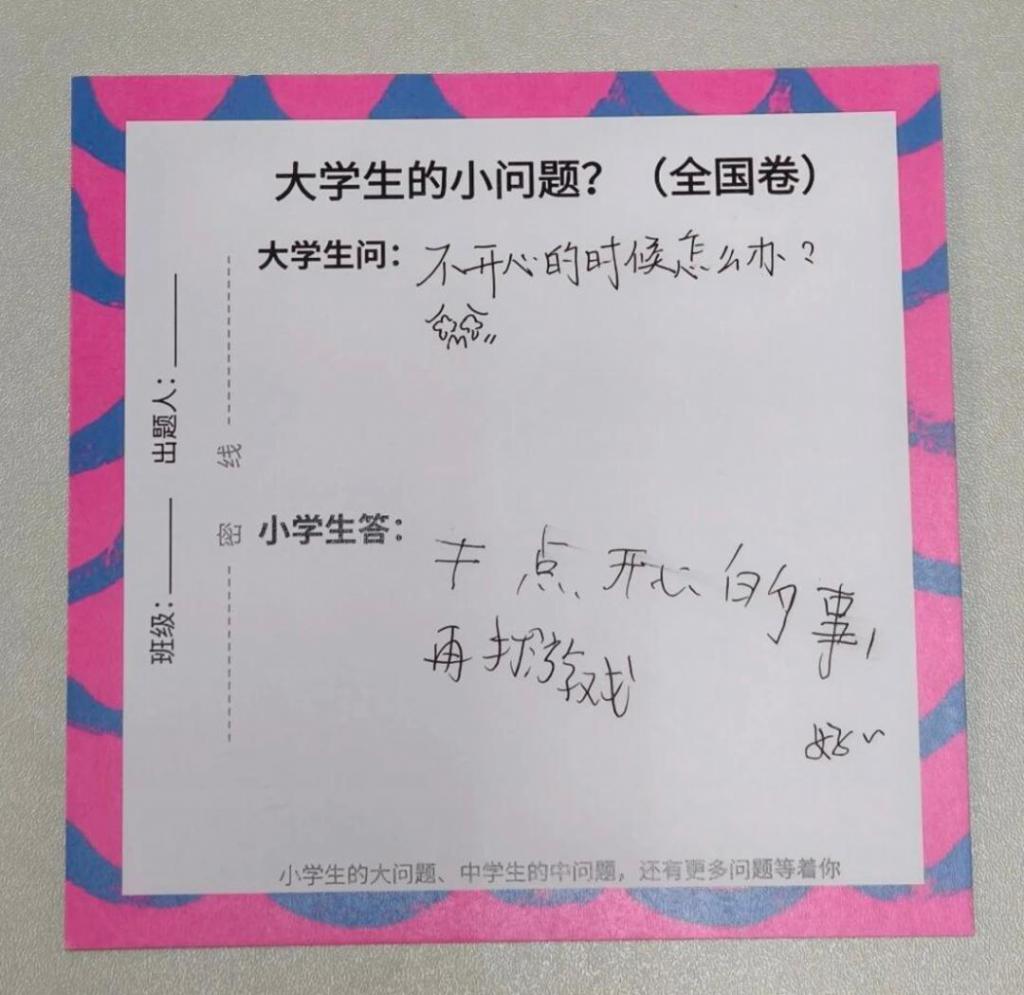 大学生的小问题？（全国卷）
大学生问：不开心的时候怎么办？
小学生答：
点开心的事，
再找游戏
好~
班级：
出题人：
密
线
小学生的大问题、中学生的中问题，还有更多问题等着你